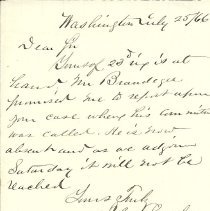 Washington July 25/66
Dear Sir
Yours of 23d ins is at
hand, Mr Brandegee
promised me to report upon
your case when his committee
was called. He is now
absent and as we adjourn
Saturday it will not be
reached
Yours Truly